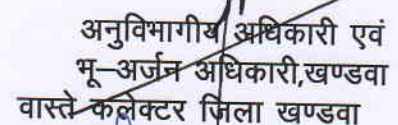 अनुविभागीय अधिकारी एवं
भू–अर्जन अधिकारी,खण्डवा
वास्ते कलेक्टर जिला खण्डवा